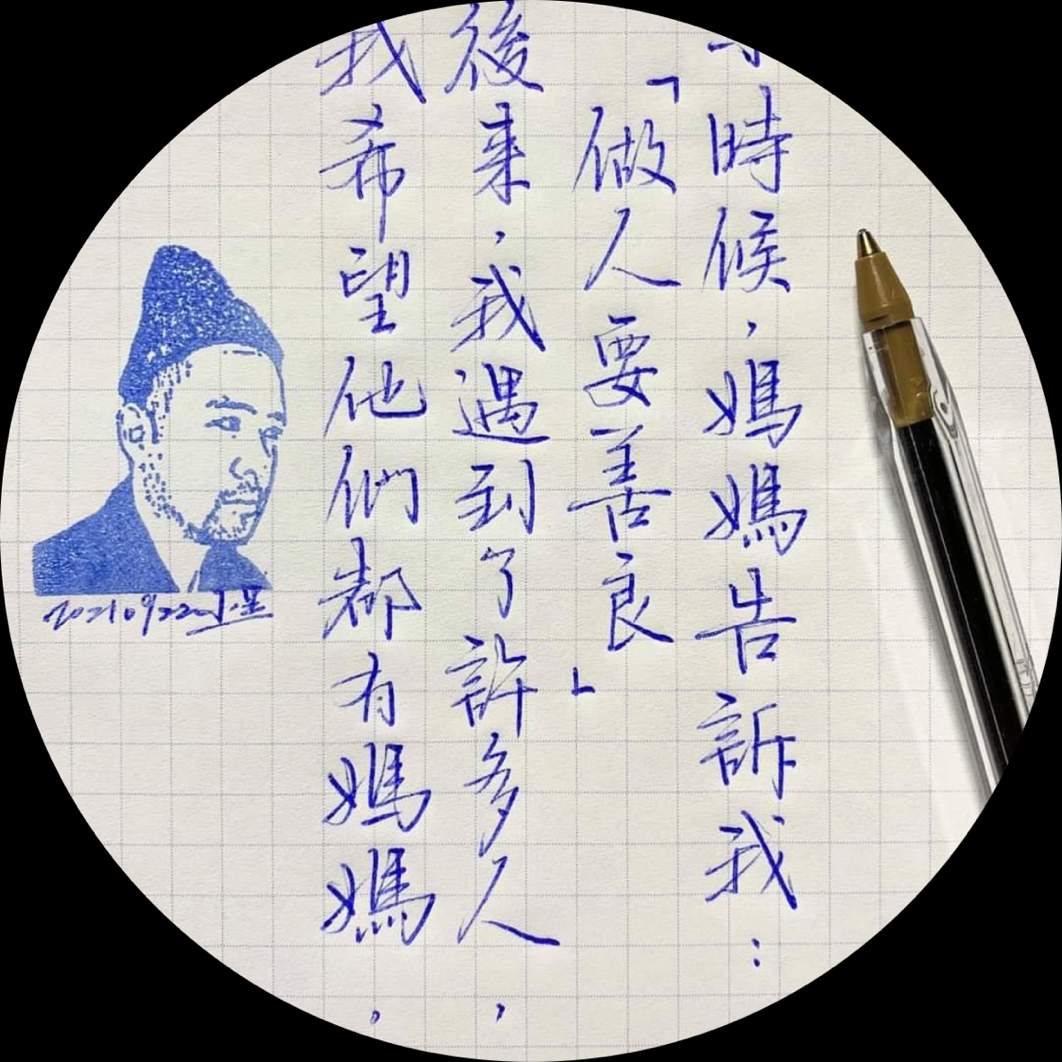 小時候，媽媽告訴我：
「做人要善良」
後来，我遇到了許多人，
我希望他們都有媽媽，
20210922